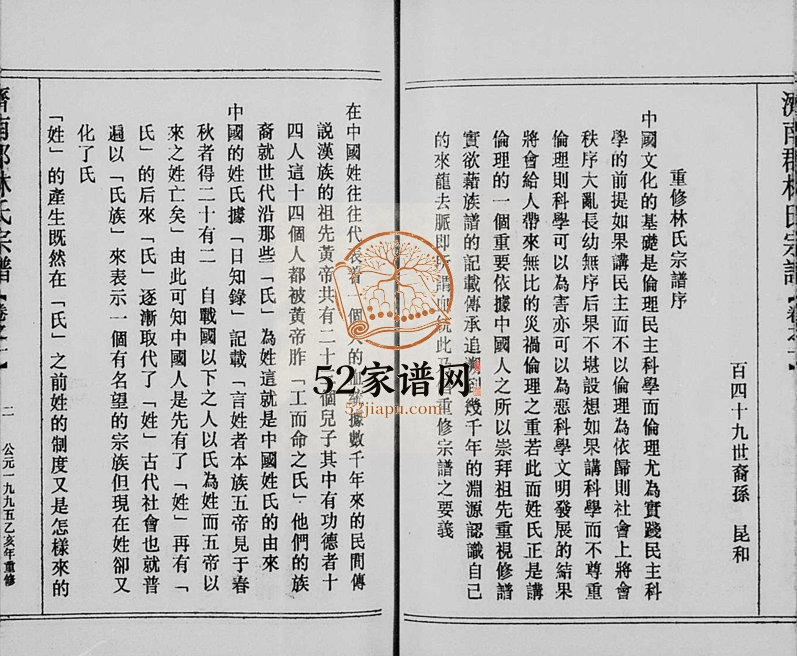 濟南郡林氏宗譜【卷之一】
重修林氏宗譜序
百四十九世裔孫 昆和
中國文化的基礎是倫理民主科學而倫理尤為實踐民主科
學的前提如果講民主而不以倫理為依歸則社會上將會
秩序大亂長幼無序后果不堪設想如果講科學而不尊重
倫理則科學可以為害亦可以為惡科學文明發展的結果
將會給人帶來無比的災禍倫理之重若此而姓氏正是講
倫理的一個重要依據中國人之所以崇拜祖先重視修譜
實欲藉族譜的記載傳承追溯到幾千年的淵源認識自己
的來龍去脈即所謂血統此乃 重修宗譜之要義
在中國姓往往代表着一個人的血統據數千年來的民間傳
說漢族的祖先黃帝共有二十 個兒子其中有功德者十
四人這十四個人都被黃帝胙「工而命之氏」他們的族
裔就世代沿那些「氏」為姓這就是中國姓氏的由來
中國的姓氏據「日知錄」記載「言姓者本族五帝見于春
秋者得二十有二 自戰國以下之人以氏為姓而五帝以
來之姓亡矣」由此可知中國人是先有了「姓」再有「
氏」的后來「氏」逐漸取代了「姓」古代社會也就普
遍以「氏族」來表示一個有名望的宗族但現在姓卻又
化了氏
「姓」的產生既然在「氏」之前姓的制度又是怎樣來的
濟南郡林氏宗譜【卷之一】
二 公元一九九五乙亥年重修
52家谱网
52jiapu.com